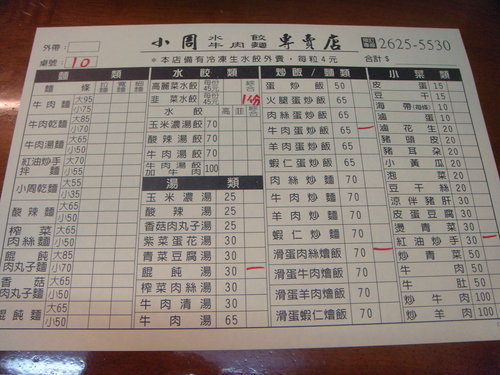 外帶:
小周 水餃 牛肉麵 專賣店 2625-5530
桌號: 10
*本店備有冷凍生水餃外賣,每粒4元
合計$
麵類
麵條
牛肉麵 大95 小75
牛肉乾麵 大85 小70
牛肉湯麵 大55 小50
紅油炒手拌麵 大65 小55
小周乾麵 大55 小35
酸辣麵 大55 小50
榨菜肉絲麵 大60 小50
餛飩肉丸子麵 大85 小70
香菇肉丸子麵 大60 小50
餛飩麵 大60 小50
水餃類
高麗菜水餃 每份45元
韭菜水餃 每份45元
綜合
1份
水餃 高 韭
玉米濃湯餃 70
酸辣湯餃 70
牛肉湯餃 70
牛肉湯餃加牛肉 100
湯類
玉米濃湯 25
酸辣湯 25
香菇肉丸子湯 30
紫菜蛋花湯 30
青菜豆腐湯 30
餛飩湯 30
榨菜肉絲湯 30
牛肉清湯 30
牛肉湯 65
炒飯/麵類
蛋炒飯 50
火腿蛋炒飯 65
肉絲蛋炒飯 65
牛肉蛋炒飯 65
羊肉蛋炒飯 65
蝦仁蛋炒飯 65
肉絲炒麵 70
牛肉炒麵 70
羊肉炒麵 70
蝦仁炒麵 70
滑蛋肉絲燴飯 70
滑蛋牛肉燴飯 70
滑蛋羊肉燴飯 70
滑蛋蝦仁燴飯 70
小菜類
皮蛋 15
豆干 15
海帶(每條) 10
滷蛋 10
滷花生 20
豬頭皮 20
豬耳朵 20
小黃瓜 20
泡菜 20
豆干絲 20
涼拌豬肝 20
皮蛋豆腐 30
燙青菜 30
紅油炒手 30
炒青菜 50
牛肉 50
牛肚 50
炒牛肉 100
炒羊肉 100